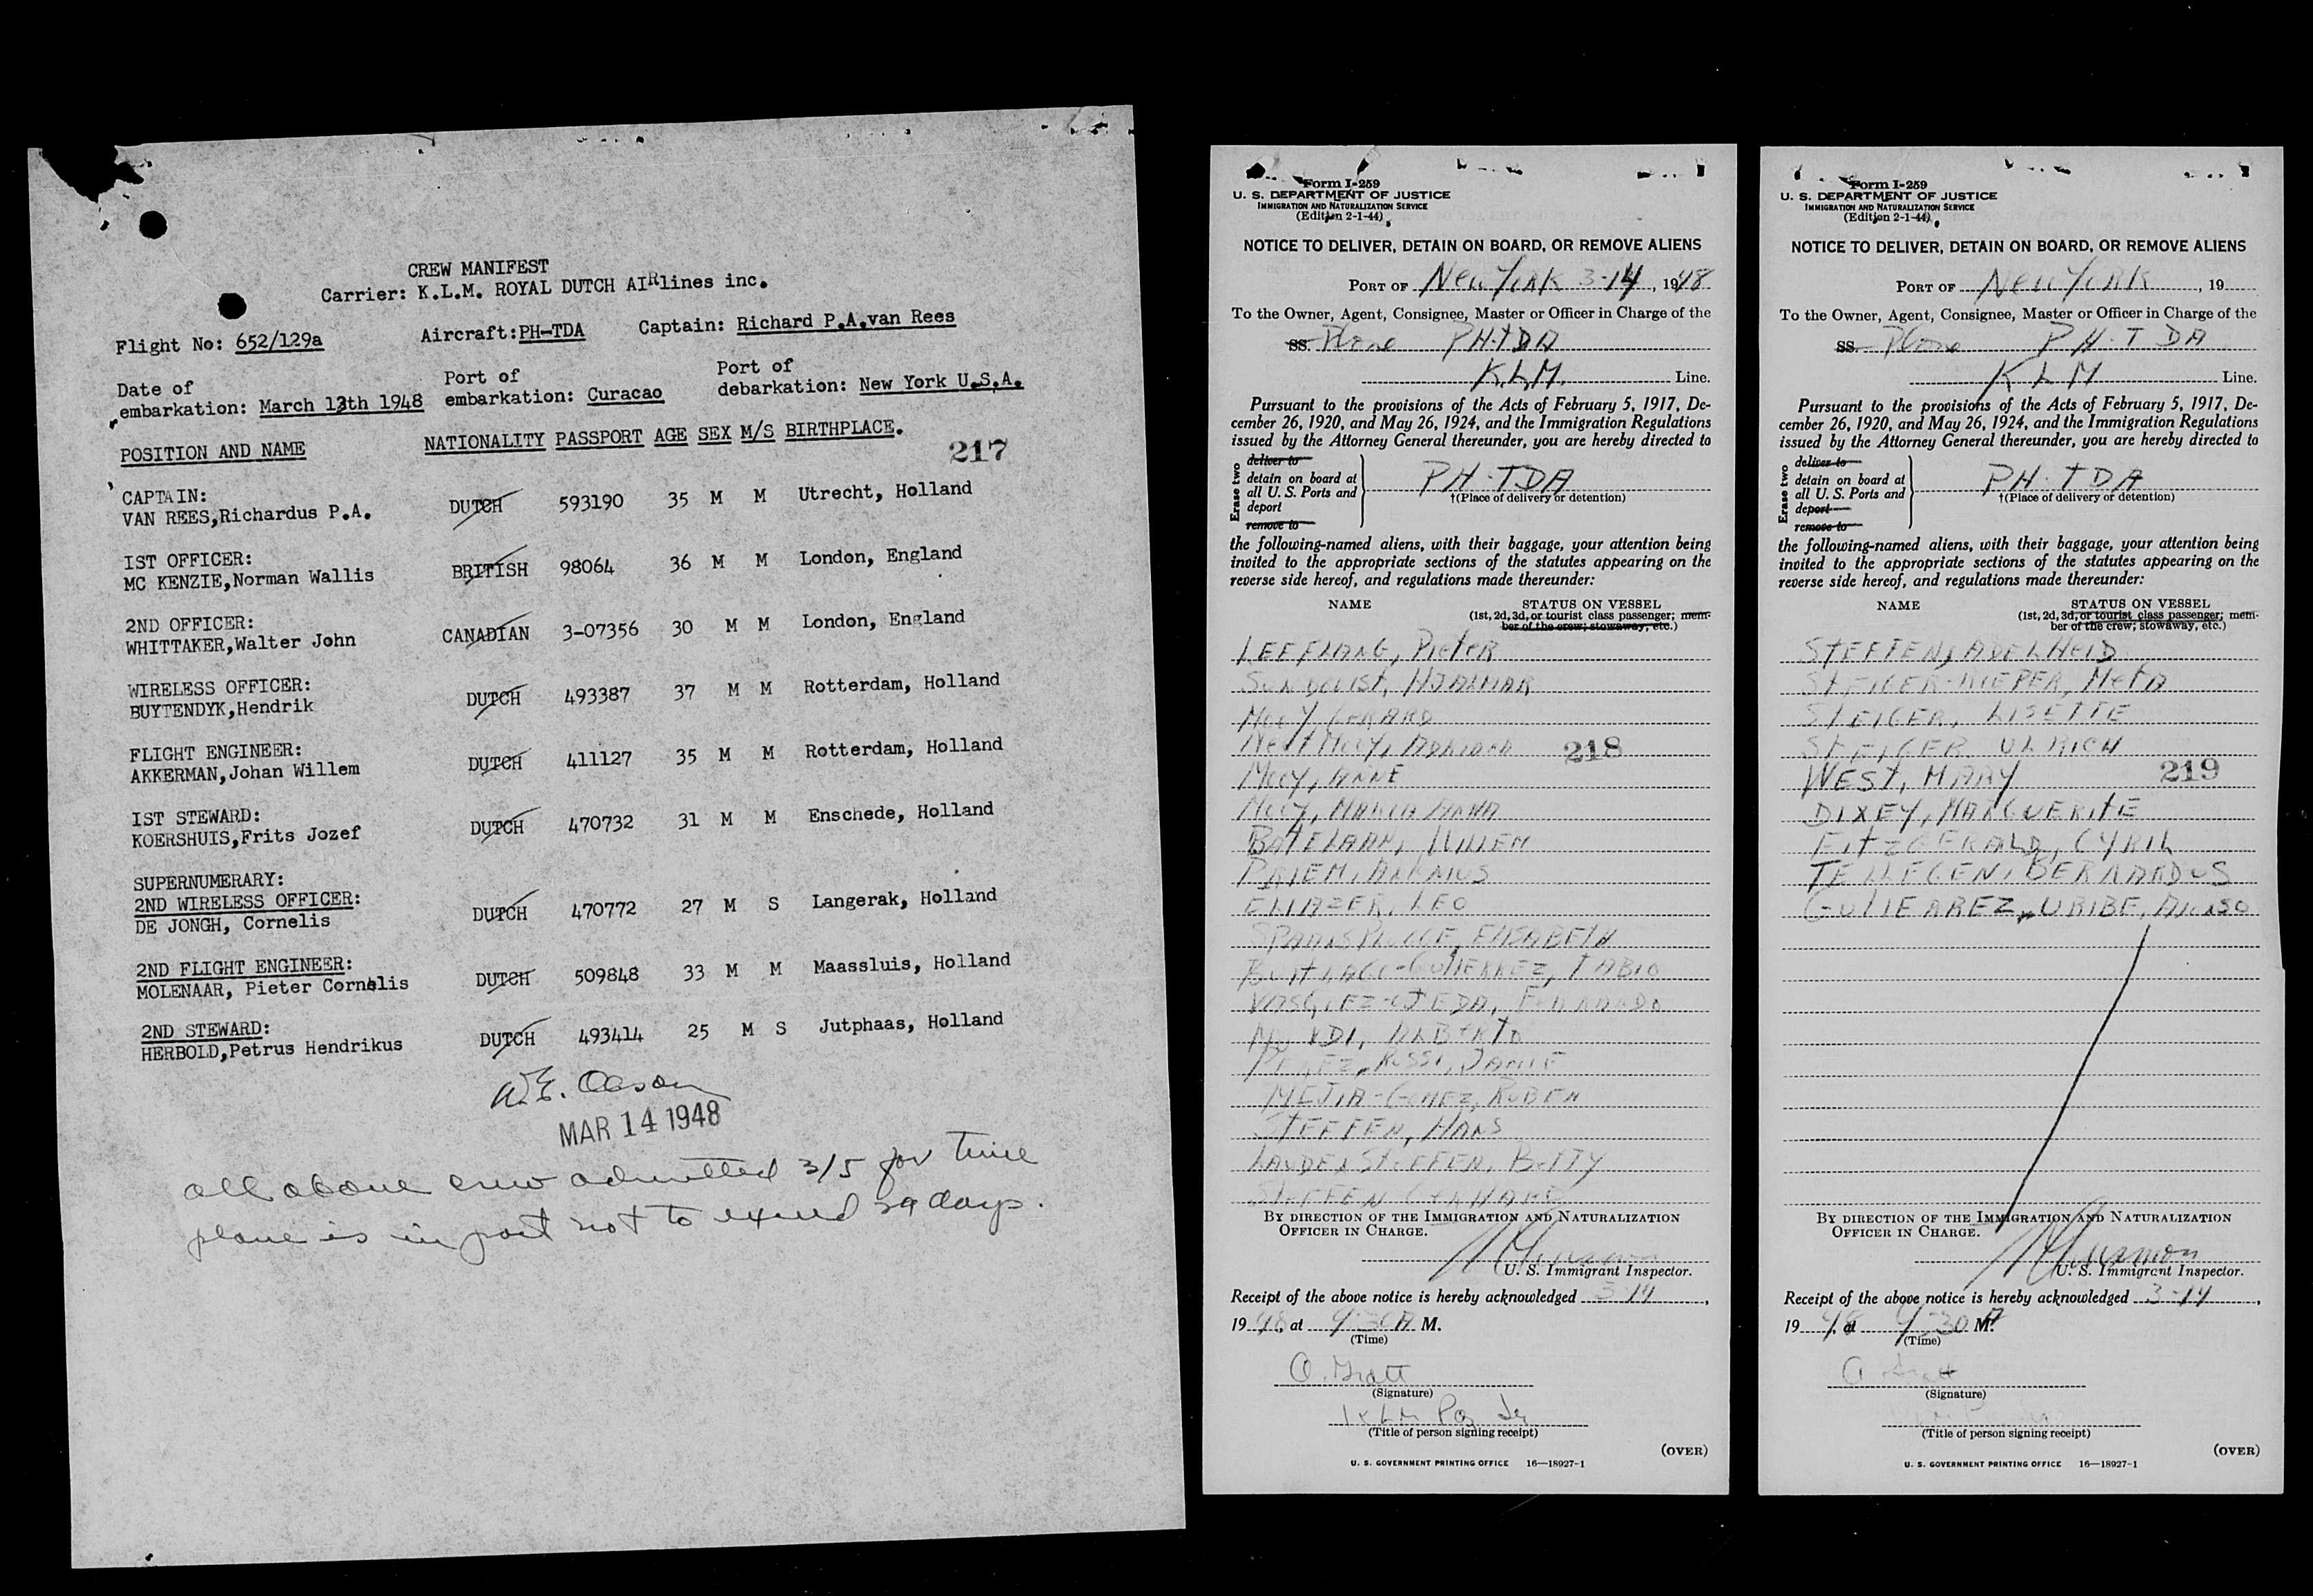 CREW MANIFEST
Carrier: K.L.M. ROYAL DUTCH AIRlines inc.
Flight No: 652/129a Aircraft:PH-TDA Captain: Richard P.A.van Rees
Date of embarkation: March 13th 1948 Port of embarkation: Curacao Port of debarkation: New York U.S.A.
POSITION AND NAME NATIONALITY PASSPORT AGE SEX M/S BIRTHPLACE.
217
CAPTAIN:
VAN REES,Richardus P.A. DUTCH 593190 35 M M Utrecht, Holland
IST OFFICER:
MC KENZIE,Norman Wallis BRITISH 98064 36 M M London, England
2ND OFFICER:
WHITTAKER,Walter John CANADIAN 3-07356 30 M M London, England
WIRELESS OFFICER:
BUYTENDYK,Hendrik DUTCH 493387 37 M M Rotterdam, Holland
FLIGHT ENGINEER:
AKKERMAN,Johan Willem DUTCH 411127 35 M M Rotterdam, Holland
IST STEWARD:
KOERSHUIS,Frits Jozef DUTCH 470732 31 M M Enschede, Holland
SUPERNUMERARY:
2ND WIRELESS OFFICER:
DE JONGH, Cornelis DUTCH 470772 27 M S Langerak, Holland
2ND FLIGHT ENGINEER:
MOLENAAR, Pieter Cornelis DUTCH 509848 33 M M Maassluis, Holland
2ND STEWARD:
HERBOLD,Petrus Hendrikus DUTCH 493414 25 M S Jutphaas, Holland
MAR 14 1948
all above crew admitted 3/5 for time
plane is in port not to exceed 29 days.
Form I-259
U. S. DEPARTMENT OF JUSTICE
IMMIGRATION AND NATURALIZATION SERVICE
(Edition 2-1-44)
NOTICE TO DELIVER, DETAIN ON BOARD, OR REMOVE ALIENS
PORT OF New York 3-14, 1948
To the Owner, Agent, Consignee, Master or Officer in Charge of the
SS. Plane PH-TDA
K.L.M. Line.
Pursuant to the provisions of the Acts of February 5, 1917, De-
cember 26, 1920, and May 26, 1924, and the Immigration Regulations
issued by the Attorney General thereunder, you are hereby directed to
Erase two
deliver to
detain on board at
all U. S. Ports and
deport
remove to
PH-TDA
†(Place of delivery or detention)
the following-named aliens, with their baggage, your attention being
invited to the appropriate sections of the statutes appearing on the
reverse side hereof, and regulations made thereunder:
NAME STATUS ON VESSEL
(1st, 2d, 3d, or tourist class passenger; mem-
ber of the crew; stowaway, etc.)
LEEFLANG, Pieter
SUNDQUIST, HJALMAR
MOOY GERARD
MOOY, ANNE
MOOY, MARIA ANNA
BATELAAN, WILLEM
PRIEM,
ELIAZER, LEO
ELISABETH
GUTIERREZ, FABIO
VASQUEZ-OJEDA, FERNANDO
ALBERTO
PEREZ, ROSSI, JAIME
MEJIA-GOMEZ, RUBEN
STEFFEN, HANS
STEFFEN, BETTY
STEFFEN GERHARD
218
BY DIRECTION OF THE IMMIGRATION AND NATURALIZATION
OFFICER IN CHARGE.
U. S. Immigrant Inspector.
Receipt of the above notice is hereby acknowledged 3-14,
1948, at 9:30 A M.
(Time)
(Signature)
(Title of person signing receipt)
(OVER)
U. S. GOVERNMENT PRINTING OFFICE 16—18927-1
Form I-259
U. S. DEPARTMENT OF JUSTICE
IMMIGRATION AND NATURALIZATION SERVICE
(Edition 2-1-44)
NOTICE TO DELIVER, DETAIN ON BOARD, OR REMOVE ALIENS
PORT OF New York, 19
To the Owner, Agent, Consignee, Master or Officer in Charge of the
SS. Plane PH-TDA
KLM Line.
Pursuant to the provisions of the Acts of February 5, 1917, De-
cember 26, 1920, and May 26, 1924, and the Immigration Regulations
issued by the Attorney General thereunder, you are hereby directed to
Erase two
deliver to
detain on board at
all U. S. Ports and
deport
remove to
PH-TDA
†(Place of delivery or detention)
the following-named aliens, with their baggage, your attention being
invited to the appropriate sections of the statutes appearing on the
reverse side hereof, and regulations made thereunder:
NAME STATUS ON VESSEL
(1st, 2d, 3d, or tourist class passenger; mem-
ber of the crew; stowaway, etc.)
STEFFEN, ADELHEID
STEIGER-KIEPER, META
STEIGER, LISETTE
STEIGER ULRICH
WEST, MARY
219
DIXEY, MARGUERITE
FITZGERALD, CYRIL
TELLEGEN, BERNARDUS
GUTIERREZ, URIBE, Alonso
BY DIRECTION OF THE IMMIGRATION AND NATURALIZATION
OFFICER IN CHARGE.
U. S. Immigrant Inspector.
Receipt of the above notice is hereby acknowledged 3-14,
1948, at 9:30 A M.
(Time)
(Signature)
(Title of person signing receipt)
(OVER)
U. S. GOVERNMENT PRINTING OFFICE 16—18927-1